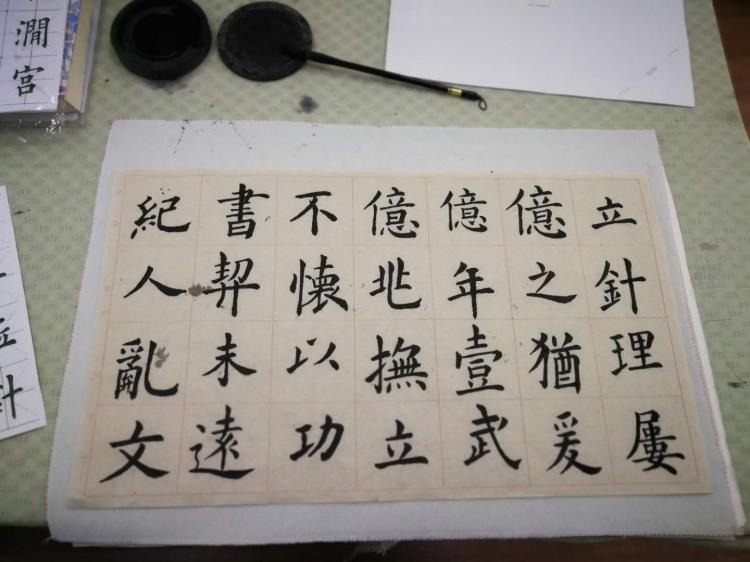 立針理屢
億之猶爰
億年壹武
億兆撫立
不懷以功
書契未遠
紀人亂文
澗宮